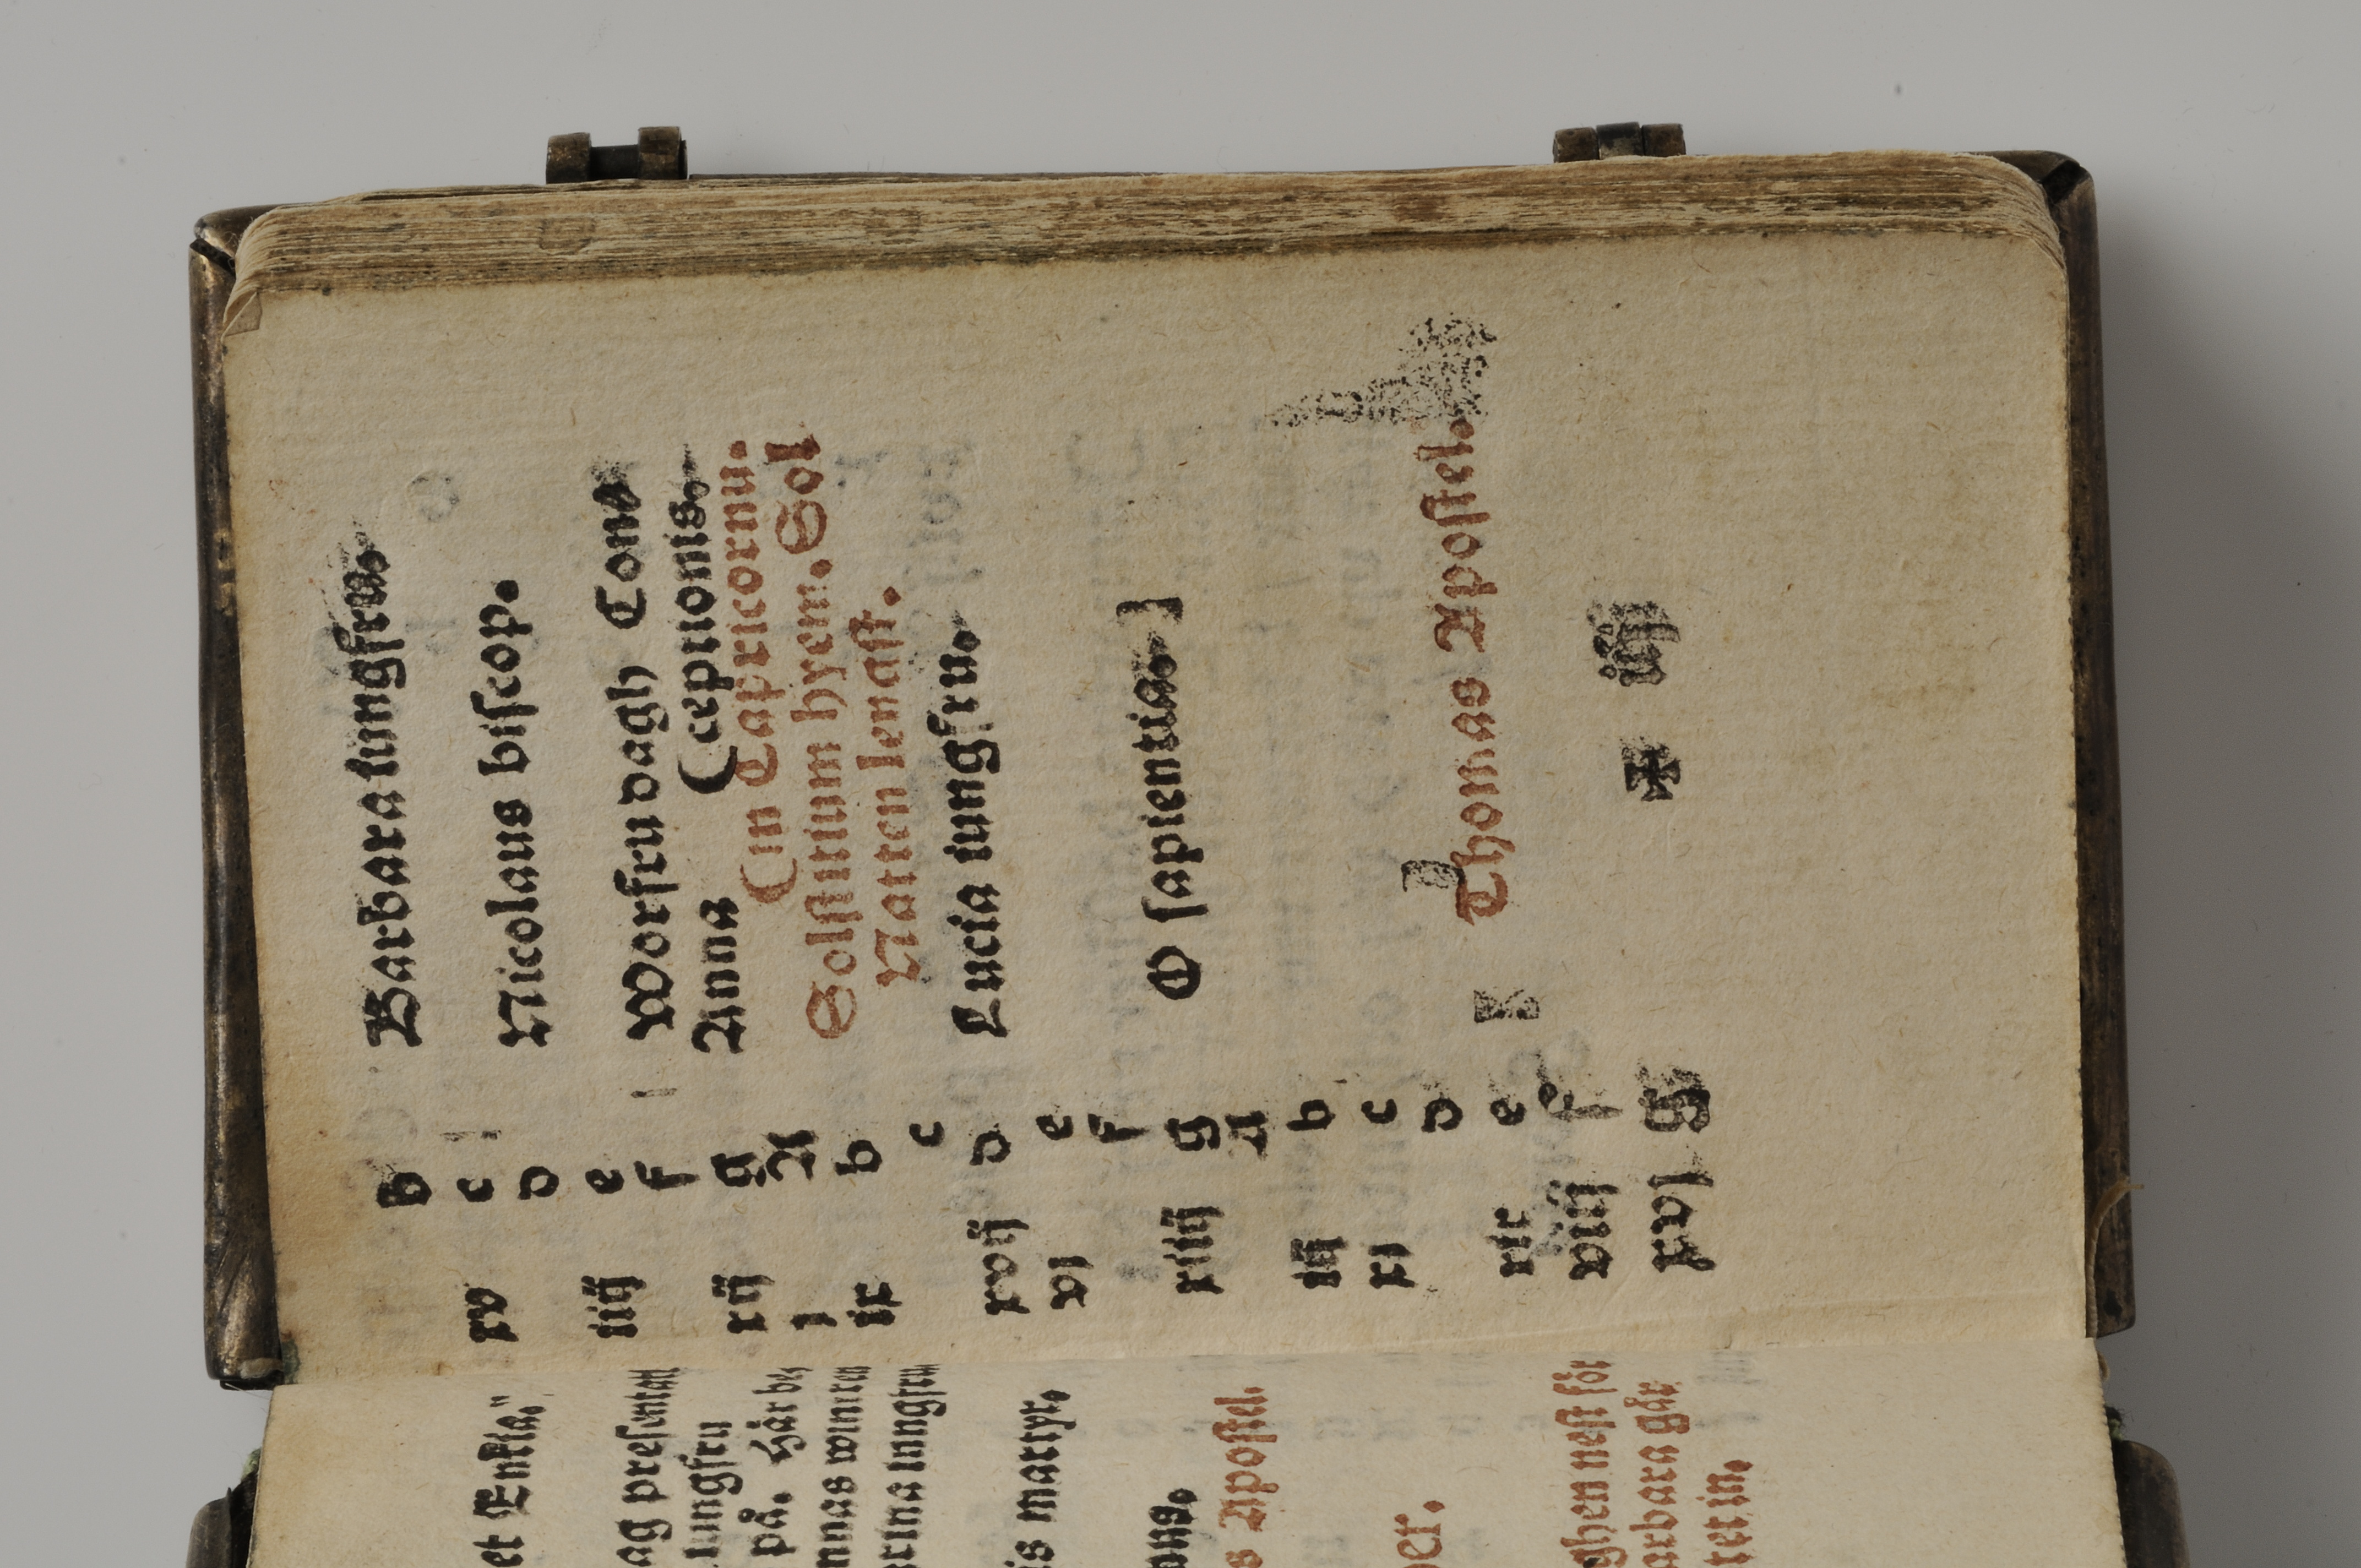 et Enkia."
ag presentat
iungfru
på. Här be⸗
nnas winren
rina iungfru
is martyr.
ona.
s Apostel.
ber.
ghen nest för
arbara går
ter in.
b Barbara iungfru.
xv c
d Nicolaus biscop.
iiij e
f Worfru dagh Con⸗
xij g Anna (ceptionis.
i A (in Capricornu.
ix b Solstitium hyem. Sol
c Natten lenast.
xvij d Lucia iungfru.
vi e
f
xiiij g O sapientia.
A
iij b
xi c
d
xix e Thomas Apostel.
viij f
xvj g ✠ iiij